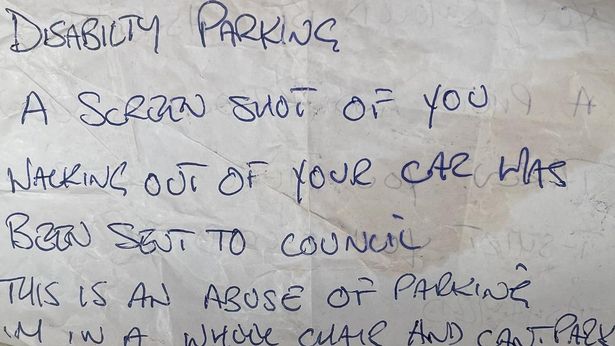 DISABILTY PARKING
A SCREEN SHOT OF YOU
WALKING OUT OF YOUR CAR WAS
BEEN SENT TO COUNCIL
THIS IS AN ABUSE OF PARKING
IM IN A CHAIR AND CANT PARK